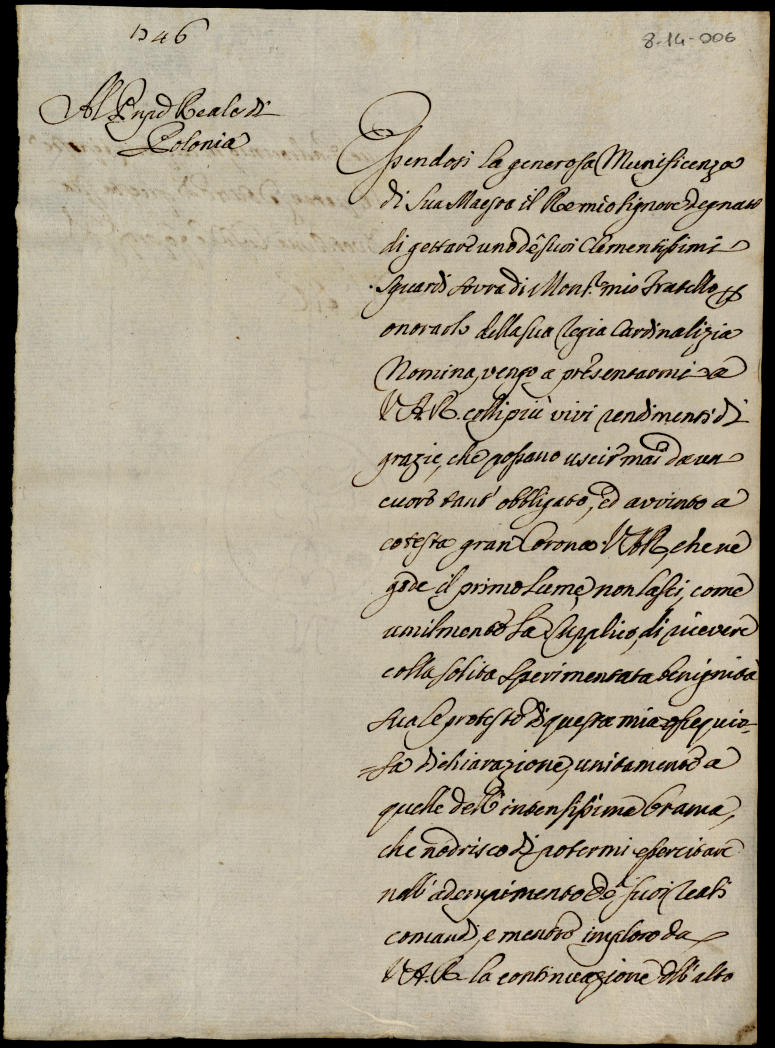 1746
8-14-006
Al Prñpe Reale di
Polonia
Essendosi la generosa Munificenza
di Sua Maestà il Re mio Signore degnata
di gettare uno de' suoi Clementissimi
sguardi sovra di Mons.r mio Fratello p
onorarlo della sua regia Cardinalizia
Nomina, vengo a presentarmi a
V.A.R. colli più vivi rendimenti di
grazie, che possano uscir mai da un
cuore tant' obbligato, ed avvinto a
cotesta gran Corona. V.A.R., che ne
gode il primo lume, non lasci, come
umilmente La supplico, di ricevere
colla solita sperimentata benignità
sua le proteste di questa mia ossequio-
=sa dichiarazione, unitamente a
quelle dell' intensissima brama,
che nodrisco di potermi essercitare
nell' adempimento de' suoi reali
comandi, e mentre imploro da
V.A.R. la continuazione dell' alto